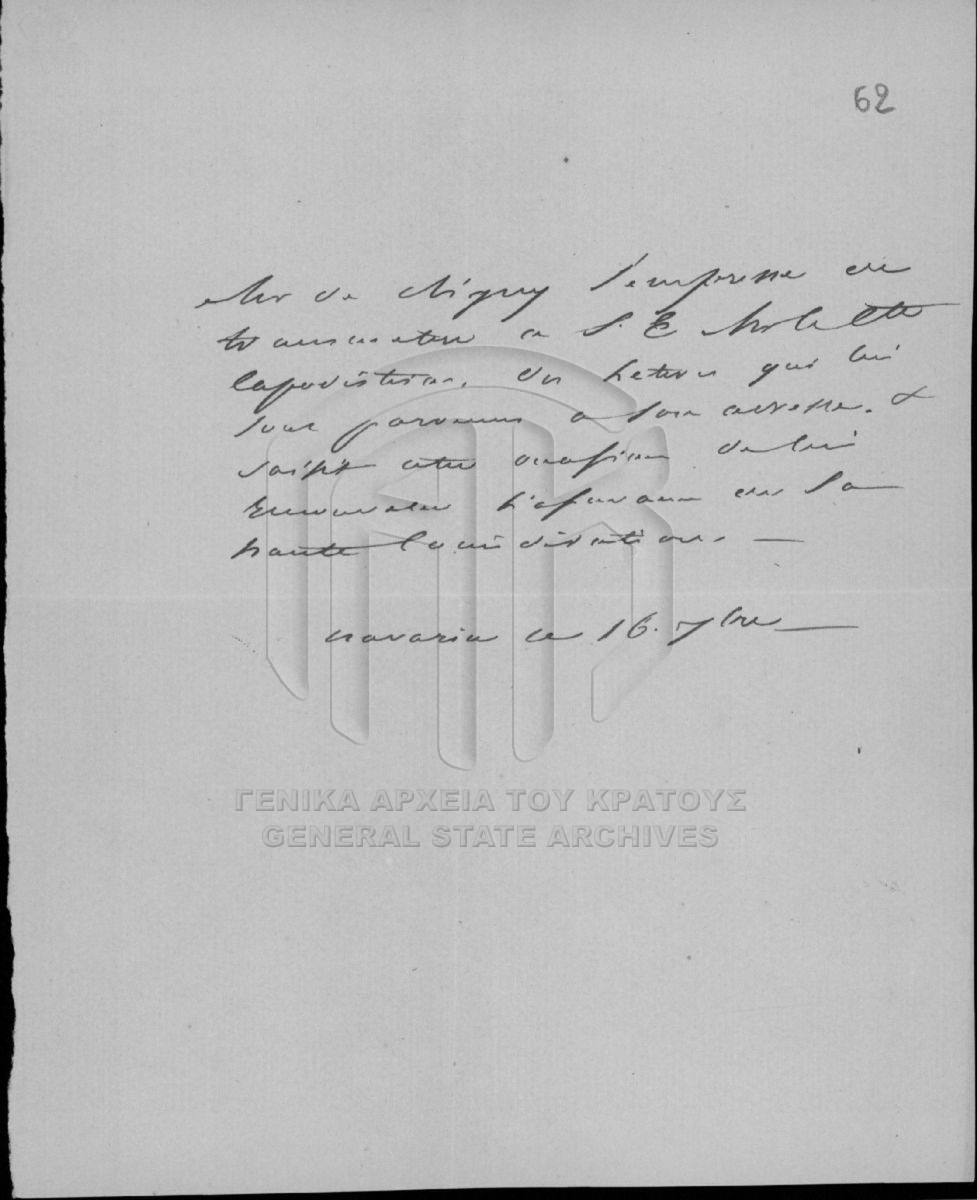 62
Mr de Rigny s'empresse de
transmettre a S. E Mr le Cte
Capodistrias, des lettres qui lui
sont parvenues a son adresse. &
saisit cette occasion de lui
renouveler l'assurance de sa
haute Considération. —
navarin ce 16. 7bre —
ΓΕΝΙΚΑ ΑΡΧΕΙΑ ΤΟΥ ΚΡΑΤΟΥΣ
GENERAL STATE ARCHIVES